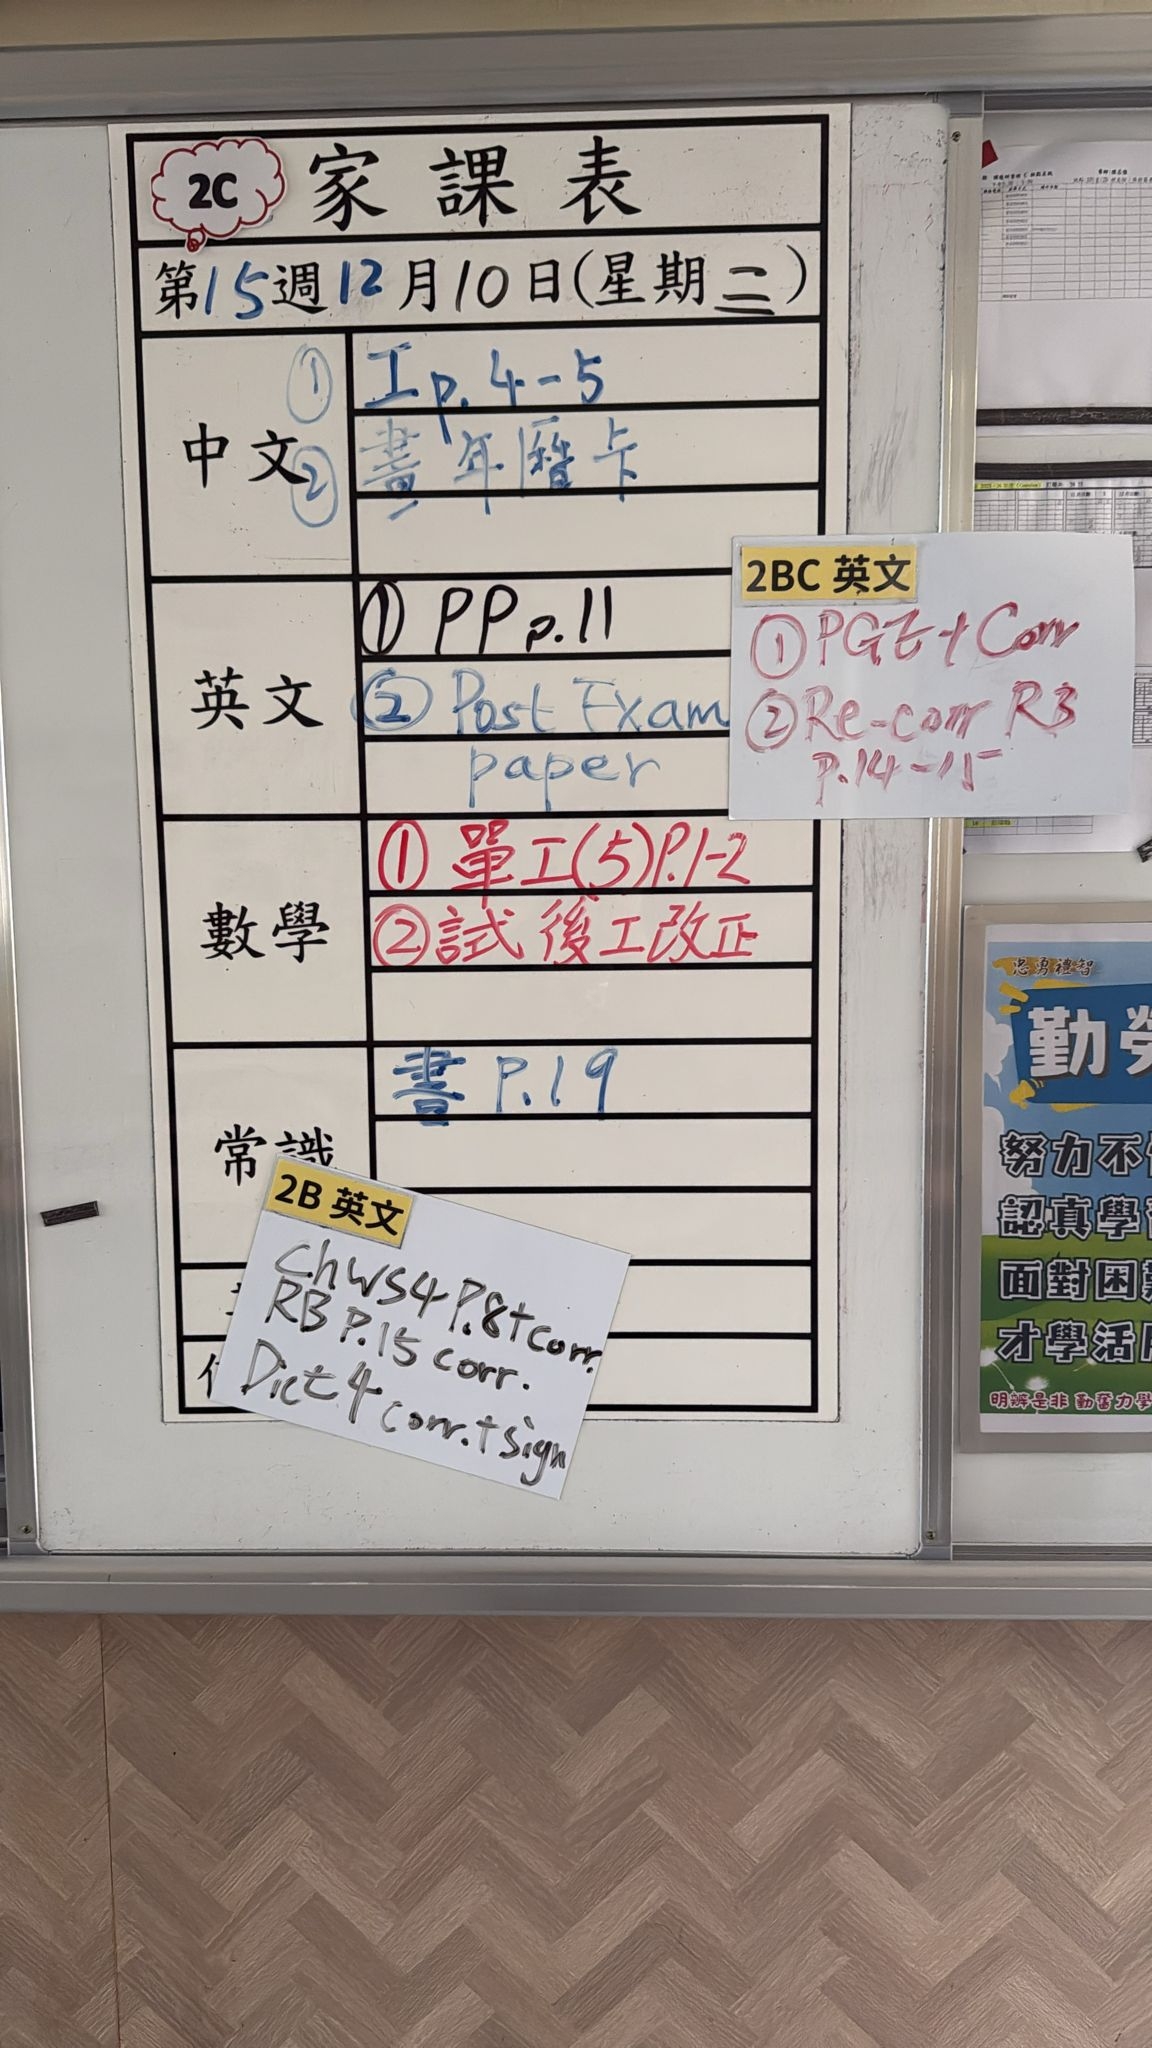 2C 家課表
第15週12月10日(星期二)
中文
① 工p.4-5
② 畫年曆卡
英文
① PP p.11
② Post Exam
paper
2BC 英文
① PGE + Corr
② Re-corr RB
p.14-15
數學
① 單工(5)P.1-2
② 試後工改正
常識
書 P.19
2B 英文
ChWS4 P.8+corr.
RB P.15 corr.
Dict 4
corr.+sign
忠勇禮智
勤勞
努力不
認真學習
面對困難
才學活用
明辨是非 勤奮力學